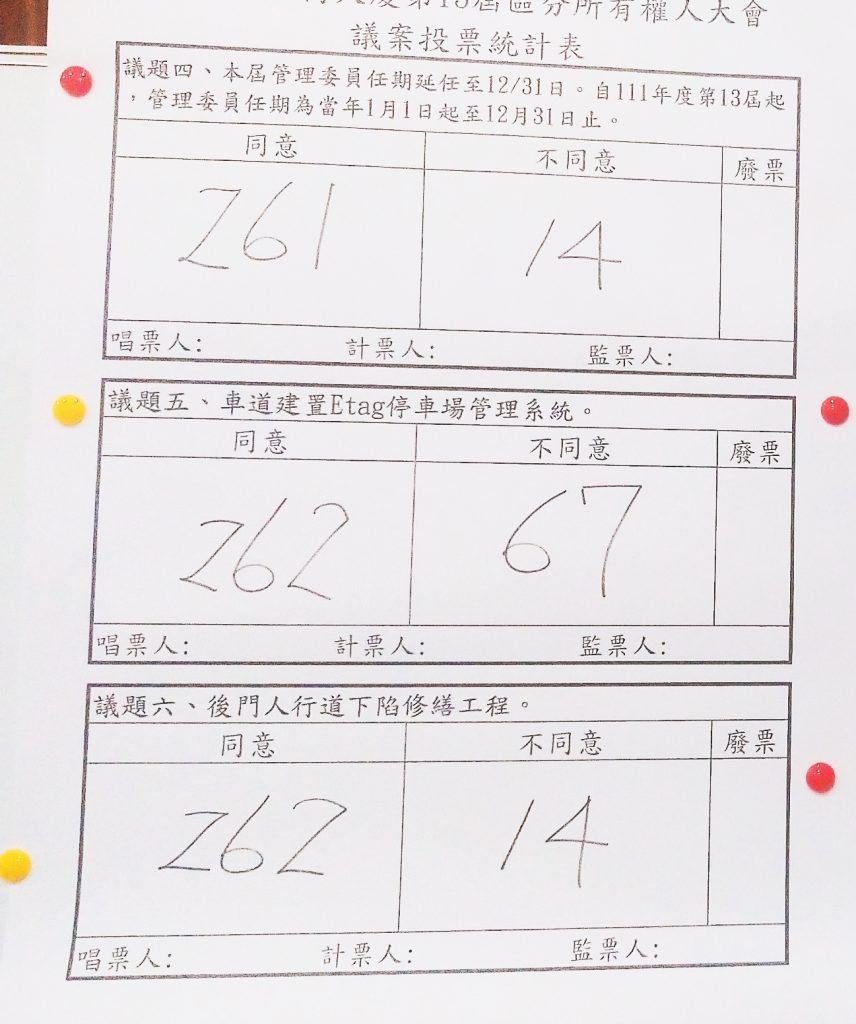 大廈第13屆區分所有權人大會
議案投票統計表
議題四、本屆管理委員任期延任至12/31日。自111年度第13屆起
，管理委員任期為當年1月1日起至12月31日止。
同意 不同意 廢票
261 14
唱票人: 計票人: 監票人:
議題五、車道建置Etag停車場管理系統。
同意 不同意 廢票
262 67
唱票人: 計票人: 監票人:
議題六、後門人行道下陷修繕工程。
同意 不同意 廢票
262 14
唱票人: 計票人: 監票人: